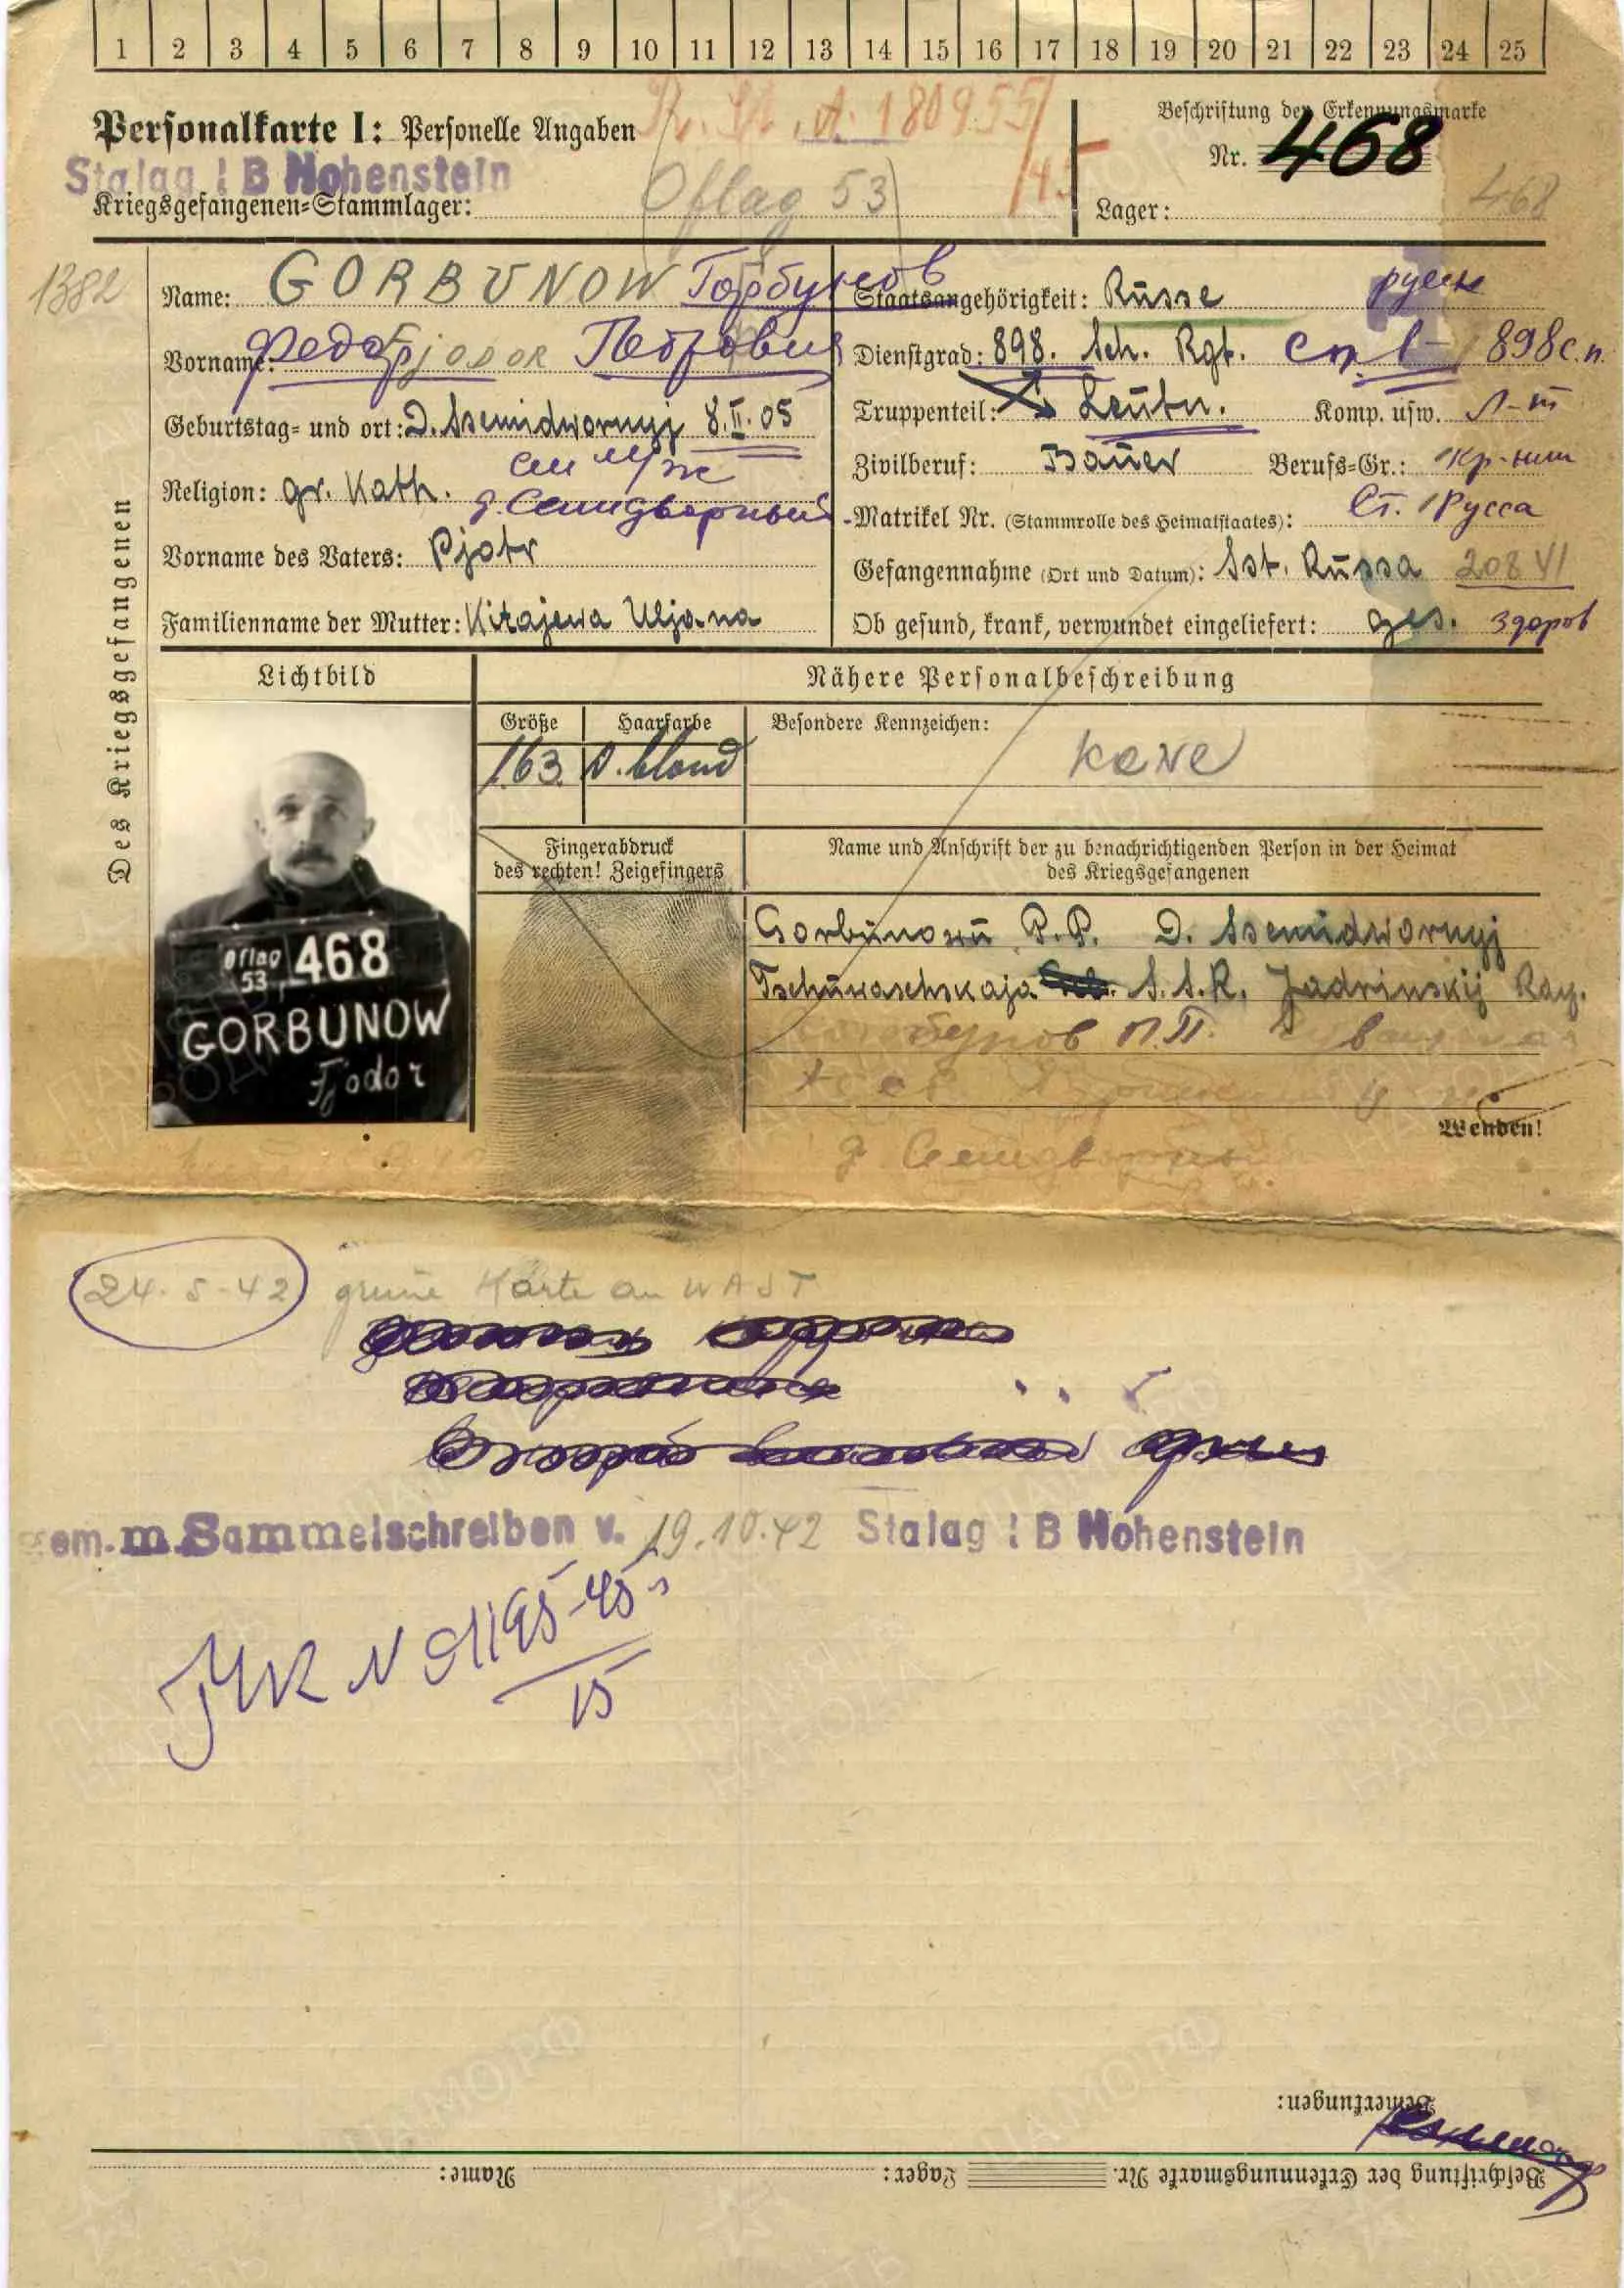 1 2 3 4 5 6 7 8 9 10 11 12 13 14 15 16 17 18 19 20 21 22 23 24 25
Personalkarte I: Personelle Angaben
180955
Beschriftung der Erkennungsmarke
Nr. 468
Stalag I B Hohenstein
Kriegsgefangenen-Stammlager: Oflag 53
Lager: 468
1382
Des Kriegsgefangenen
Name: GORBUNOW Горбунов
Vorname: Федор Fjodor Петрович
Geburtstag- und ort: D. Ssemidwornyj 8.II.05
Religion: gr. Kath.
д. Семидворный
Vorname des Vaters: Pjotr
Familienname der Mutter: Kitajewa Uljana
Staatsangehörigkeit: Russe
Dienstgrad: 898. Sch. Rgt. 898 с.п.
Truppenteil: Leutn. Komp. usw. Л-т
Zivilberuf: Bauer Berufs-Gr.:
Matrikel Nr. (Stammrolle des Heimatstaates): Ст. Русса
Gefangennahme (Ort und Datum): Sst. Russa
Ob gesund, krank, verwundet eingeliefert: ges. здоров
Lichtbild
Nähere Personalbeschreibung
Größe Haarfarbe Besondere Kennzeichen:
163 d. blond keine
Oflag
53 468
GORBUNOW
Fjodor
Fingerabdruck
des rechten! Zeigefingers
Name und Anschrift der zu benachrichtigenden Person in der Heimat
des Kriegsgefangenen
Gorbunowu P.P. D. Ssemidwornyj
Tschuwaschskaja S.S.R. Jadrinskij Ray.
Горбунов П.П.
д. Семидворный
Wenden!
24.5.42 grüne Karte an WAST
gem. m. Sammelschreiben v. 19.10.42 Stalag I B Hohenstein
15
Bemerkungen:
Beschriftung der Erkennungsmarke Nr. Lager: Name: